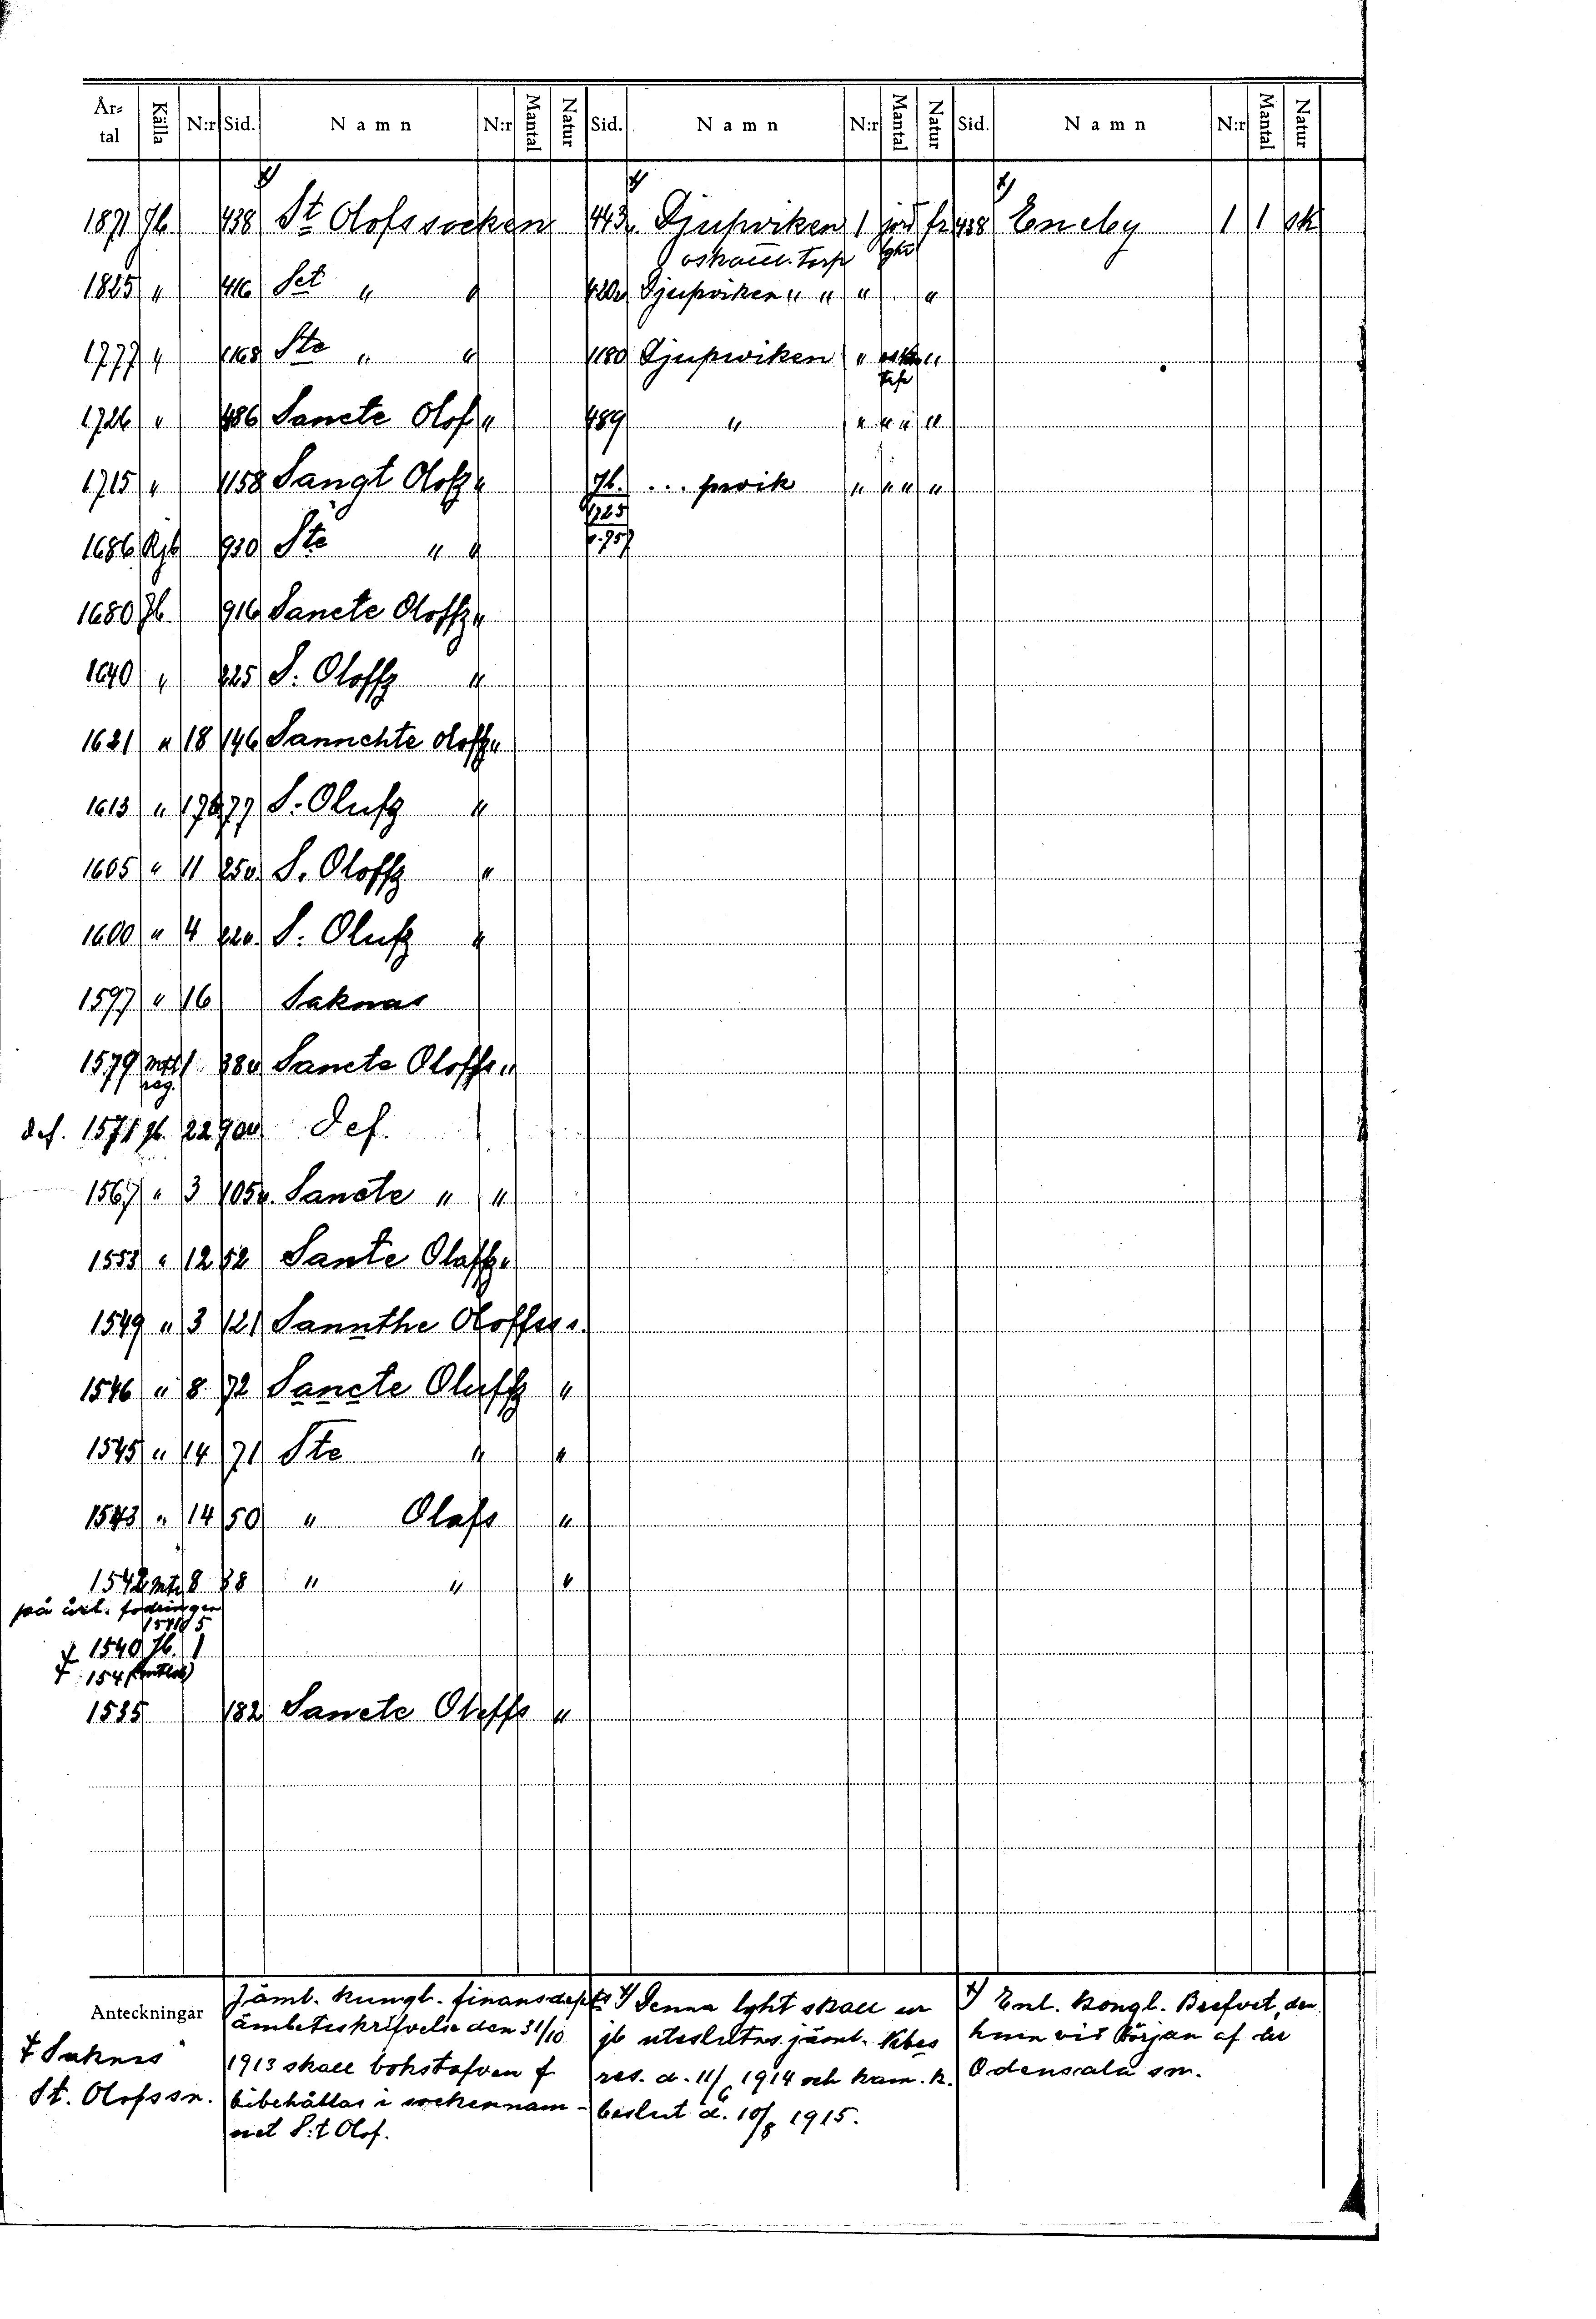 År-tal Källa N:r Sid. Namn N:r Mantal Natur Sid. Namn N:r Mantal Natur Sid. Namn N:r Mantal Natur
1871 Jb. 438 St Olofs socken 443v Djupviken 1 jord fr 438 Eneby 1 1 sk
oskattl. torp lght
1825 " 416 Sct " " 420v Djupviken " " " "
1777 " 1168 Ste " " 1180 Djupwiken " "
1726 " 486 Sancte Olof " 489 " " " " "
1715 " 1158 Sangt Olofz " Jb. ... pwik " " " "
1725
1686 Rjb 930 Ste " " p. 757
1680 Jb. 916 Sancte Oloffz "
1640 " 225 S. Oloffz "
1621 " 18 146 Sannchte Oloffz "
1613 " 17 677 S. Olufz "
1605 " 11 25v. S. Oloffz "
1600 " 4 S. Olufz "
1597 " 16 Saknas
1579 mtl 1 38v Sancte Oloffs "
reg.
def. 1571 Jb. 22 90v def.
1567 " 3 105v. Sancte " "
1553 " 12 52 Sante Olaffz "
1549 " 3 121 Sannthe Oloffsss.
1546 " 8 72 Sancte Oluffz "
1545 " 14 71 Ste " "
1543 " 14 50 " Olafs "
1542 8 38 " " "
på årl. fodringen
1541 5
⨍ 1540 Jb. 1
⨍ 1541
1535 182 Sancte Oleffs "
Anteckningar
⨍ Saknas
St. Olofs sn.
Jäml. kungl. finansdepts
ämbetsskrifvelse den 31/10
1913 skall bokstafven f
bibehållas i sockennam-
net S:t Olof.
Denna lght skall ur
jb uteslutas jäml. Kbes
res. d. 11/6 1914 och kam. k.
beslut d. 10/8 1915.
Enl. kongl. Brefvet, den
hmn vid Början af der
Odensala sn.